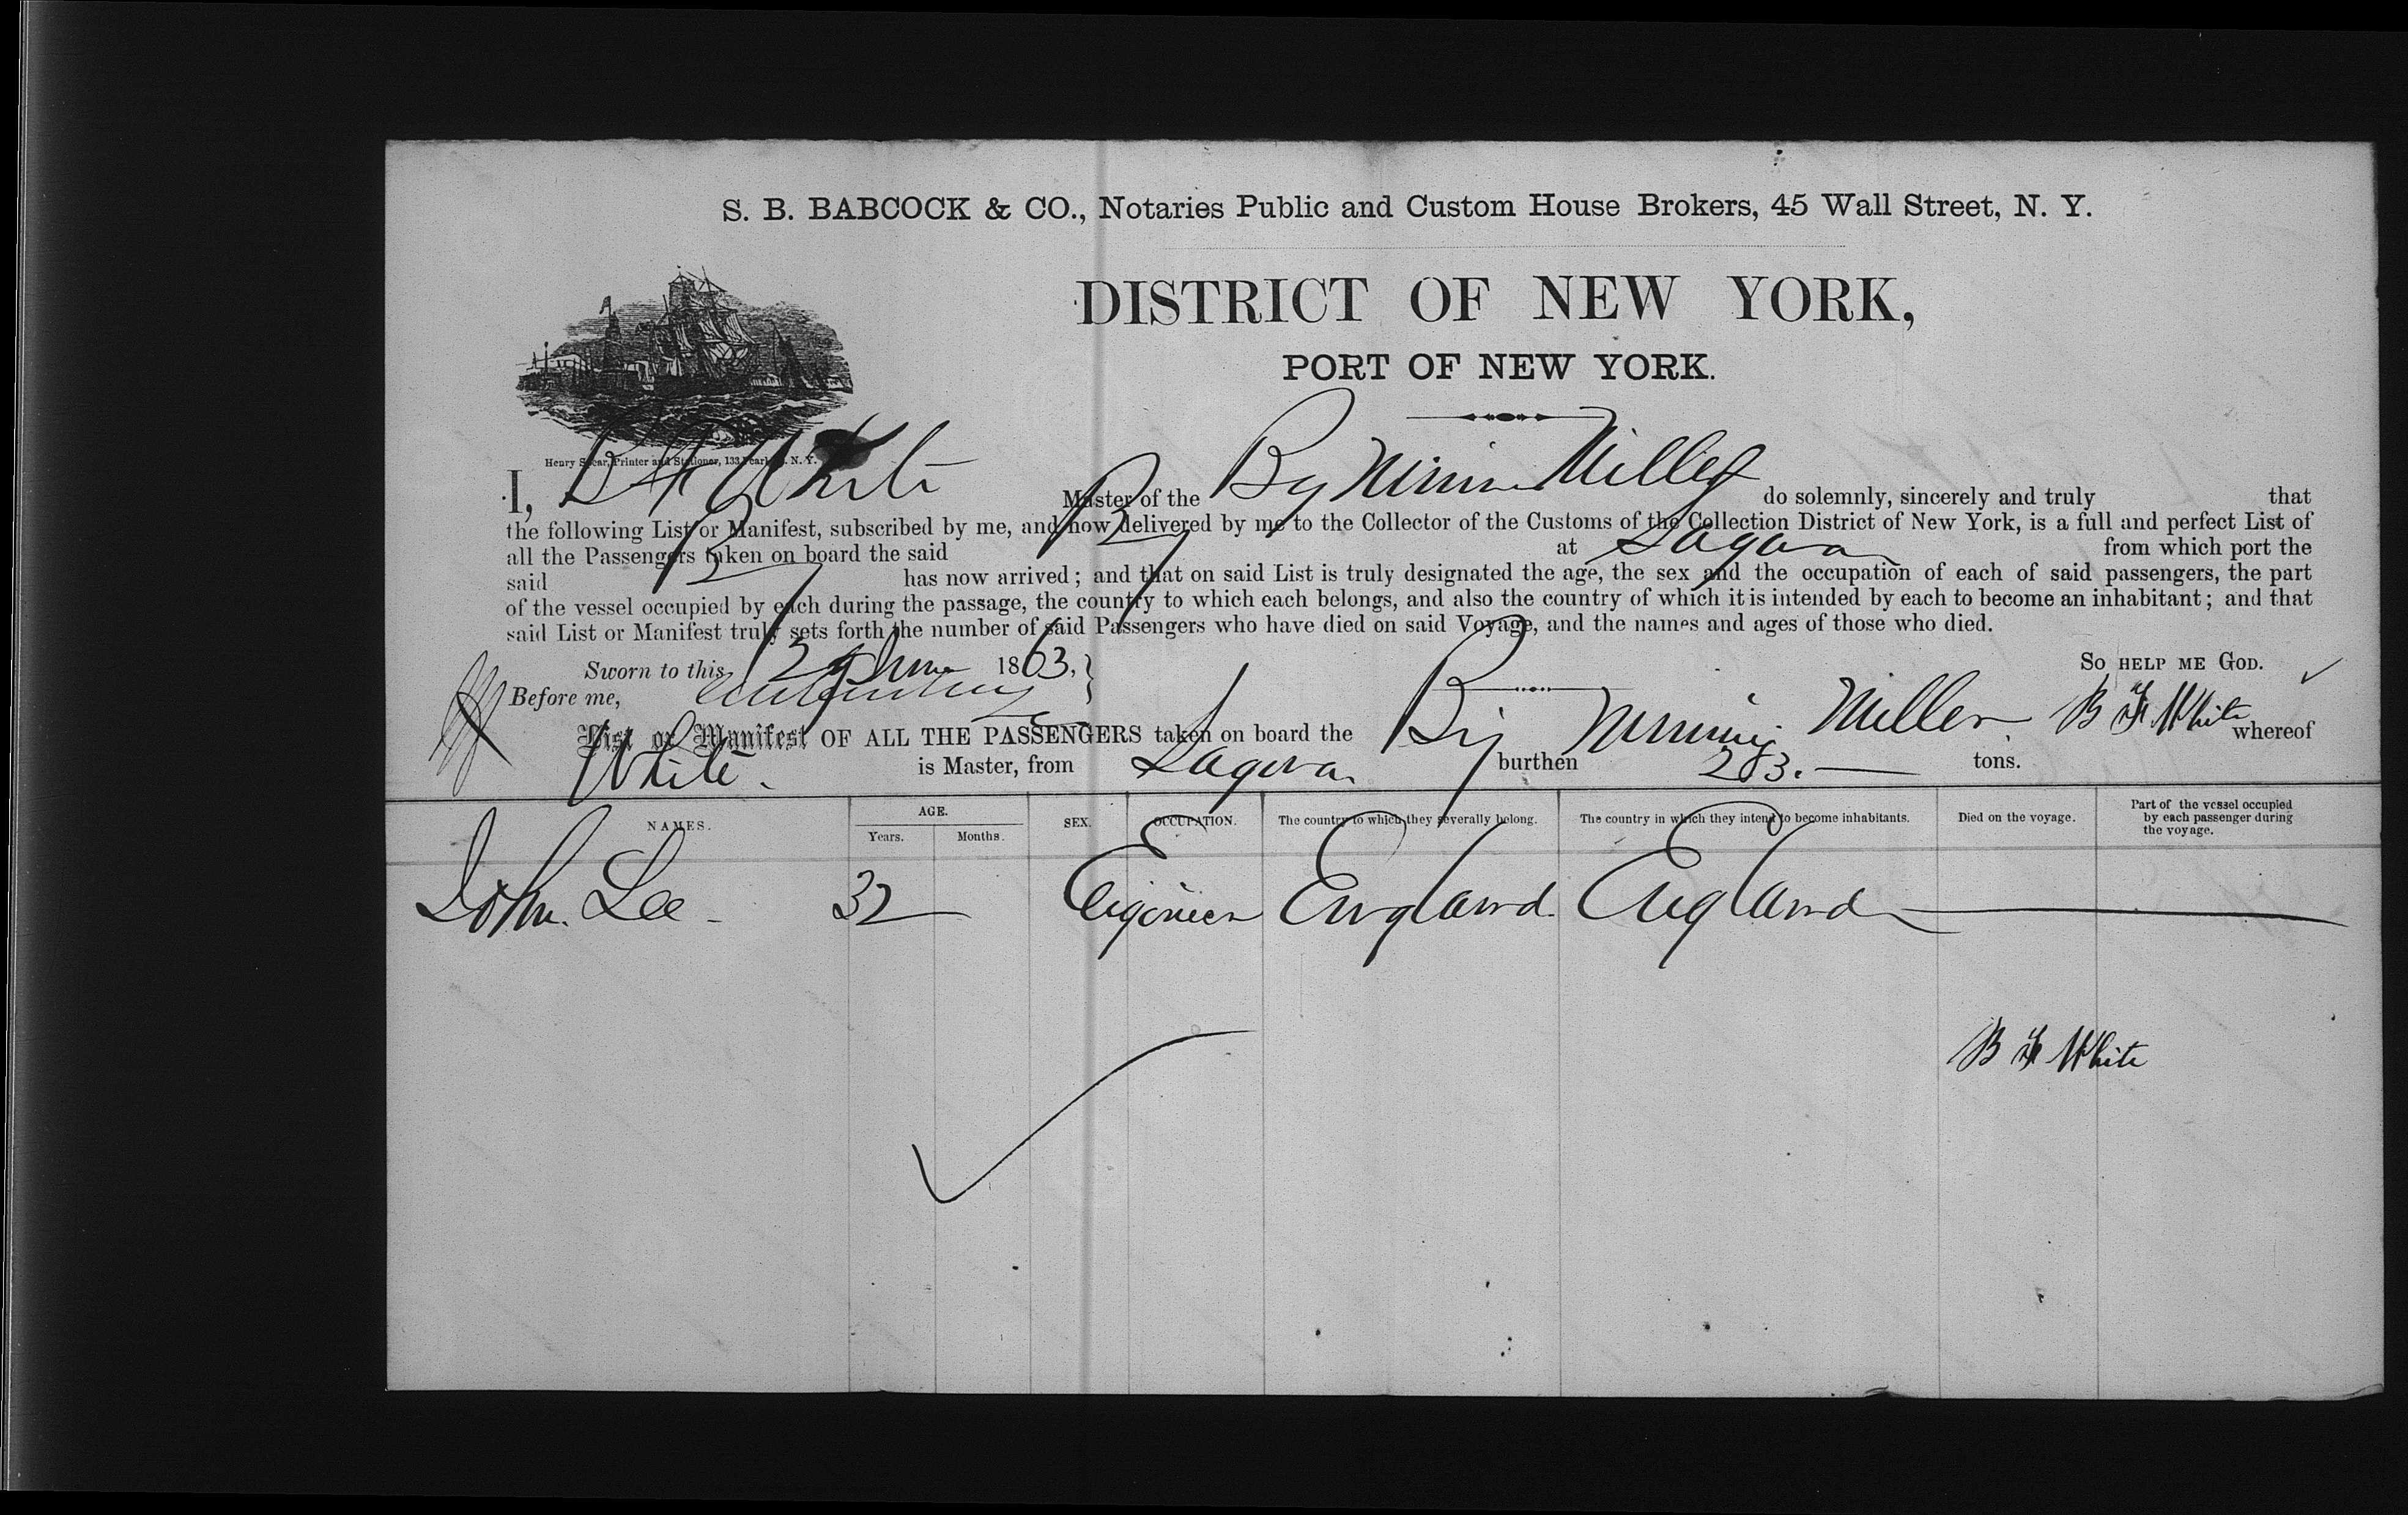 S. B. BABCOCK & CO., Notaries Public and Custom House Brokers, 45 Wall Street, N. Y.
DISTRICT OF NEW YORK,
PORT OF NEW YORK.
Henry Spear, Printer and Stationer, 133 Pearl St. N. Y.
I, B F White Master of the Bg Miller do solemnly, sincerely and truly that
the following List or Manifest, subscribed by me, and now delivered by me to the Collector of the Customs of the Collection District of New York, is a full and perfect List of
all the Passengers taken on board the said B at Laguna from which port the
said B has now arrived; and that on said List is truly designated the age, the sex and the occupation of each of said passengers, the part
of the vessel occupied by each during the passage, the country to which each belongs, and also the country of which it is intended by each to become an inhabitant; and that
said List or Manifest truly sets forth the number of said Passengers who have died on said Voyage, and the names and ages of those who died.
Sworn to this 29 June 1863. So HELP ME GOD.
Before me, B F White
List or Manifest OF ALL THE PASSENGERS taken on board the Brig Miller whereof
White. is Master, from Laguna burthen 283. tons.
NAMES. AGE. Years. Months. SEX. OCCUPATION. The country to which they severally belong. The country in which they intend to become inhabitants. Died on the voyage. Part of the vessel occupied by each passenger during the voyage.
John Lee 32 Engineer England England
B F White